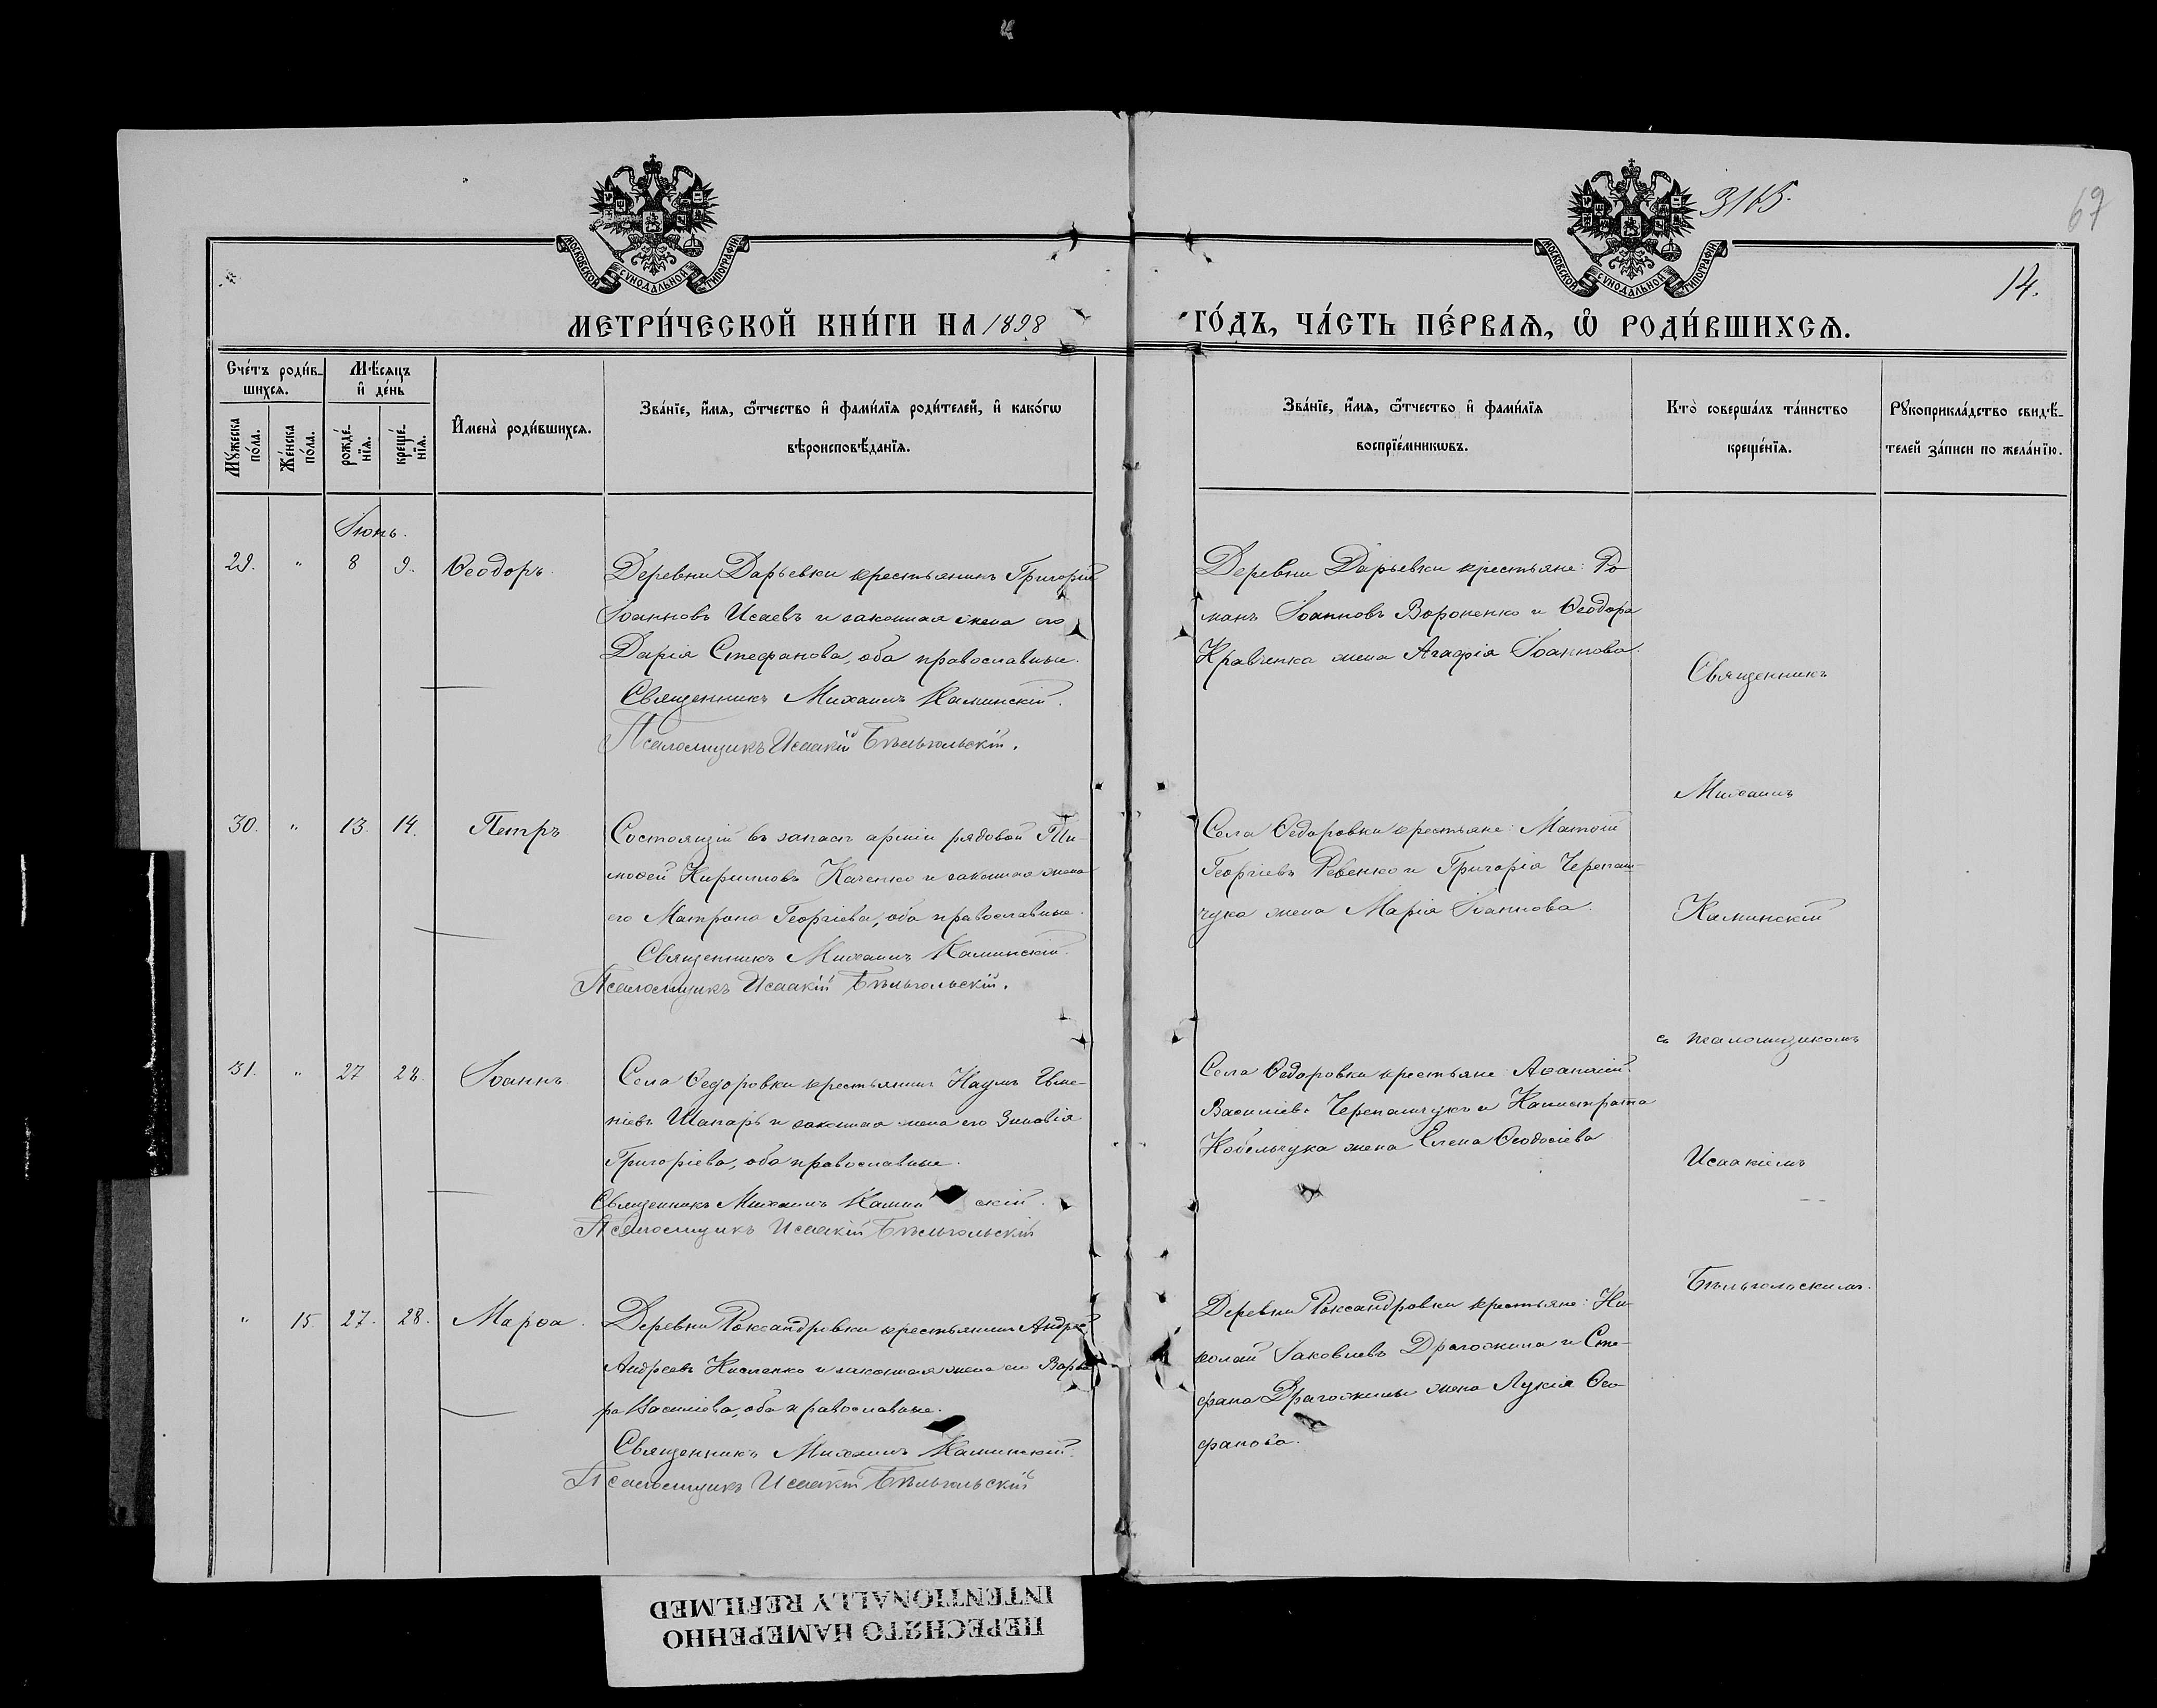 3165.
67
14.
МОСКОВСКОЙ СУНОДАЛЬНОЙ ТИПОГРАФІИ
МОСКОВСКОЙ СУНОДАЛЬНОЙ ТИПОГРАФІИ
МЕТРИ́ЧЕСКОЙ КНИ́ГИ НА 1898
ГО́ДЪ, ЧА́СТЬ ПЕ́РВАѦ, Ѡ҆ РОДИ́ВШИХСѦ.
Сче́тъ роди́в-
шихсѧ.
Мꙋ́жеска по́ла.
Же́нска по́ла.
Мѣ́сѧцъ
и҆ де́нь
рожде́-
нїѧ.
креще́-
нїѧ.
И҆мена̀ роди́вшихсѧ.
Зва́нїе, и҆́мѧ, ѻ҆́тчество и҆ фами́лїѧ роди́телей, и҆ како́гѡ
вѣроисповѣ́данїѧ.
Зва́нїе, и҆́мѧ, ѻ҆́тчество и҆ фами́лїѧ
воспрїе́мникѡвъ.
Кто̀ соверша́лъ та́инство
креще́нїѧ.
Рꙋкоприкла́дство свидѣ́-
телей за́писи по жела́нїю.
Іюнь.
29. " 8 9. Ѳеодоръ.
Деревни Дарьевки крестьянинъ Григорій
Іоанновъ Исаевъ и законная жена его
Дарія Стефанова, оба православные.
Священникъ Михаилъ Каминскій.
Псаломщикъ Исаакій Бѣльгольскій.
Деревни Дарьевки крестьяне: Ро-
манъ Іоанновъ Вороненко и Ѳеодора
Кравченка жена Агафія Іоаннова.
30. " 13. 14. Петръ
Состоящій въ запасѣ арміи рядовой Ти-
моѳей Кирилловъ Каченко и законная жена
его Матрона Георгіева, оба православные.
Священникъ Михаилъ Каминскій.
Псаломщикъ Исаакій Бѣльгольскій.
Села Ѳедоровки крестьяне: Матѳій
Георгіевъ Ревенко и Григорія Черепаш-
чука жена Марія Іоаннова.
31. " 27 28. Іоаннъ
Села Ѳедоровки крестьянинъ Наумъ
Шапарь и законная жена его Зиновія
Григоріева, оба православные.
Священникъ Михаилъ Камин скій.
Псаломщикъ Исаакій Бѣльгольскій
Села Ѳедоровки крестьяне: Аѳанасій
Василіевъ Черепашчукъ и Каллистрата
Кобельчука жена Елена Ѳеодосіева
" 15. 27. 28. Марѳа.
Деревни Роксандровки крестьянинъ Андрей
Андреевъ Кисленко и законная жена его Варва-
ра Василіева, оба православные.
Священникъ Михаилъ Каминскій.
Псаломщикъ Исаакій Бѣльгольскій
Деревни Роксандровки крестьяне: Ни-
колай Іаковлевъ Драгожина и Сте-
фана Драгожины жена Лукія Сте-
фанова.
Священникъ
Михаилъ
Каминскій
съ псаломщикомъ
Исаакіемъ
Бѣльгольскимъ.
ПЕРЕСНЯТО НАМЕРЕННО
INTENTIONALLY REFILMED